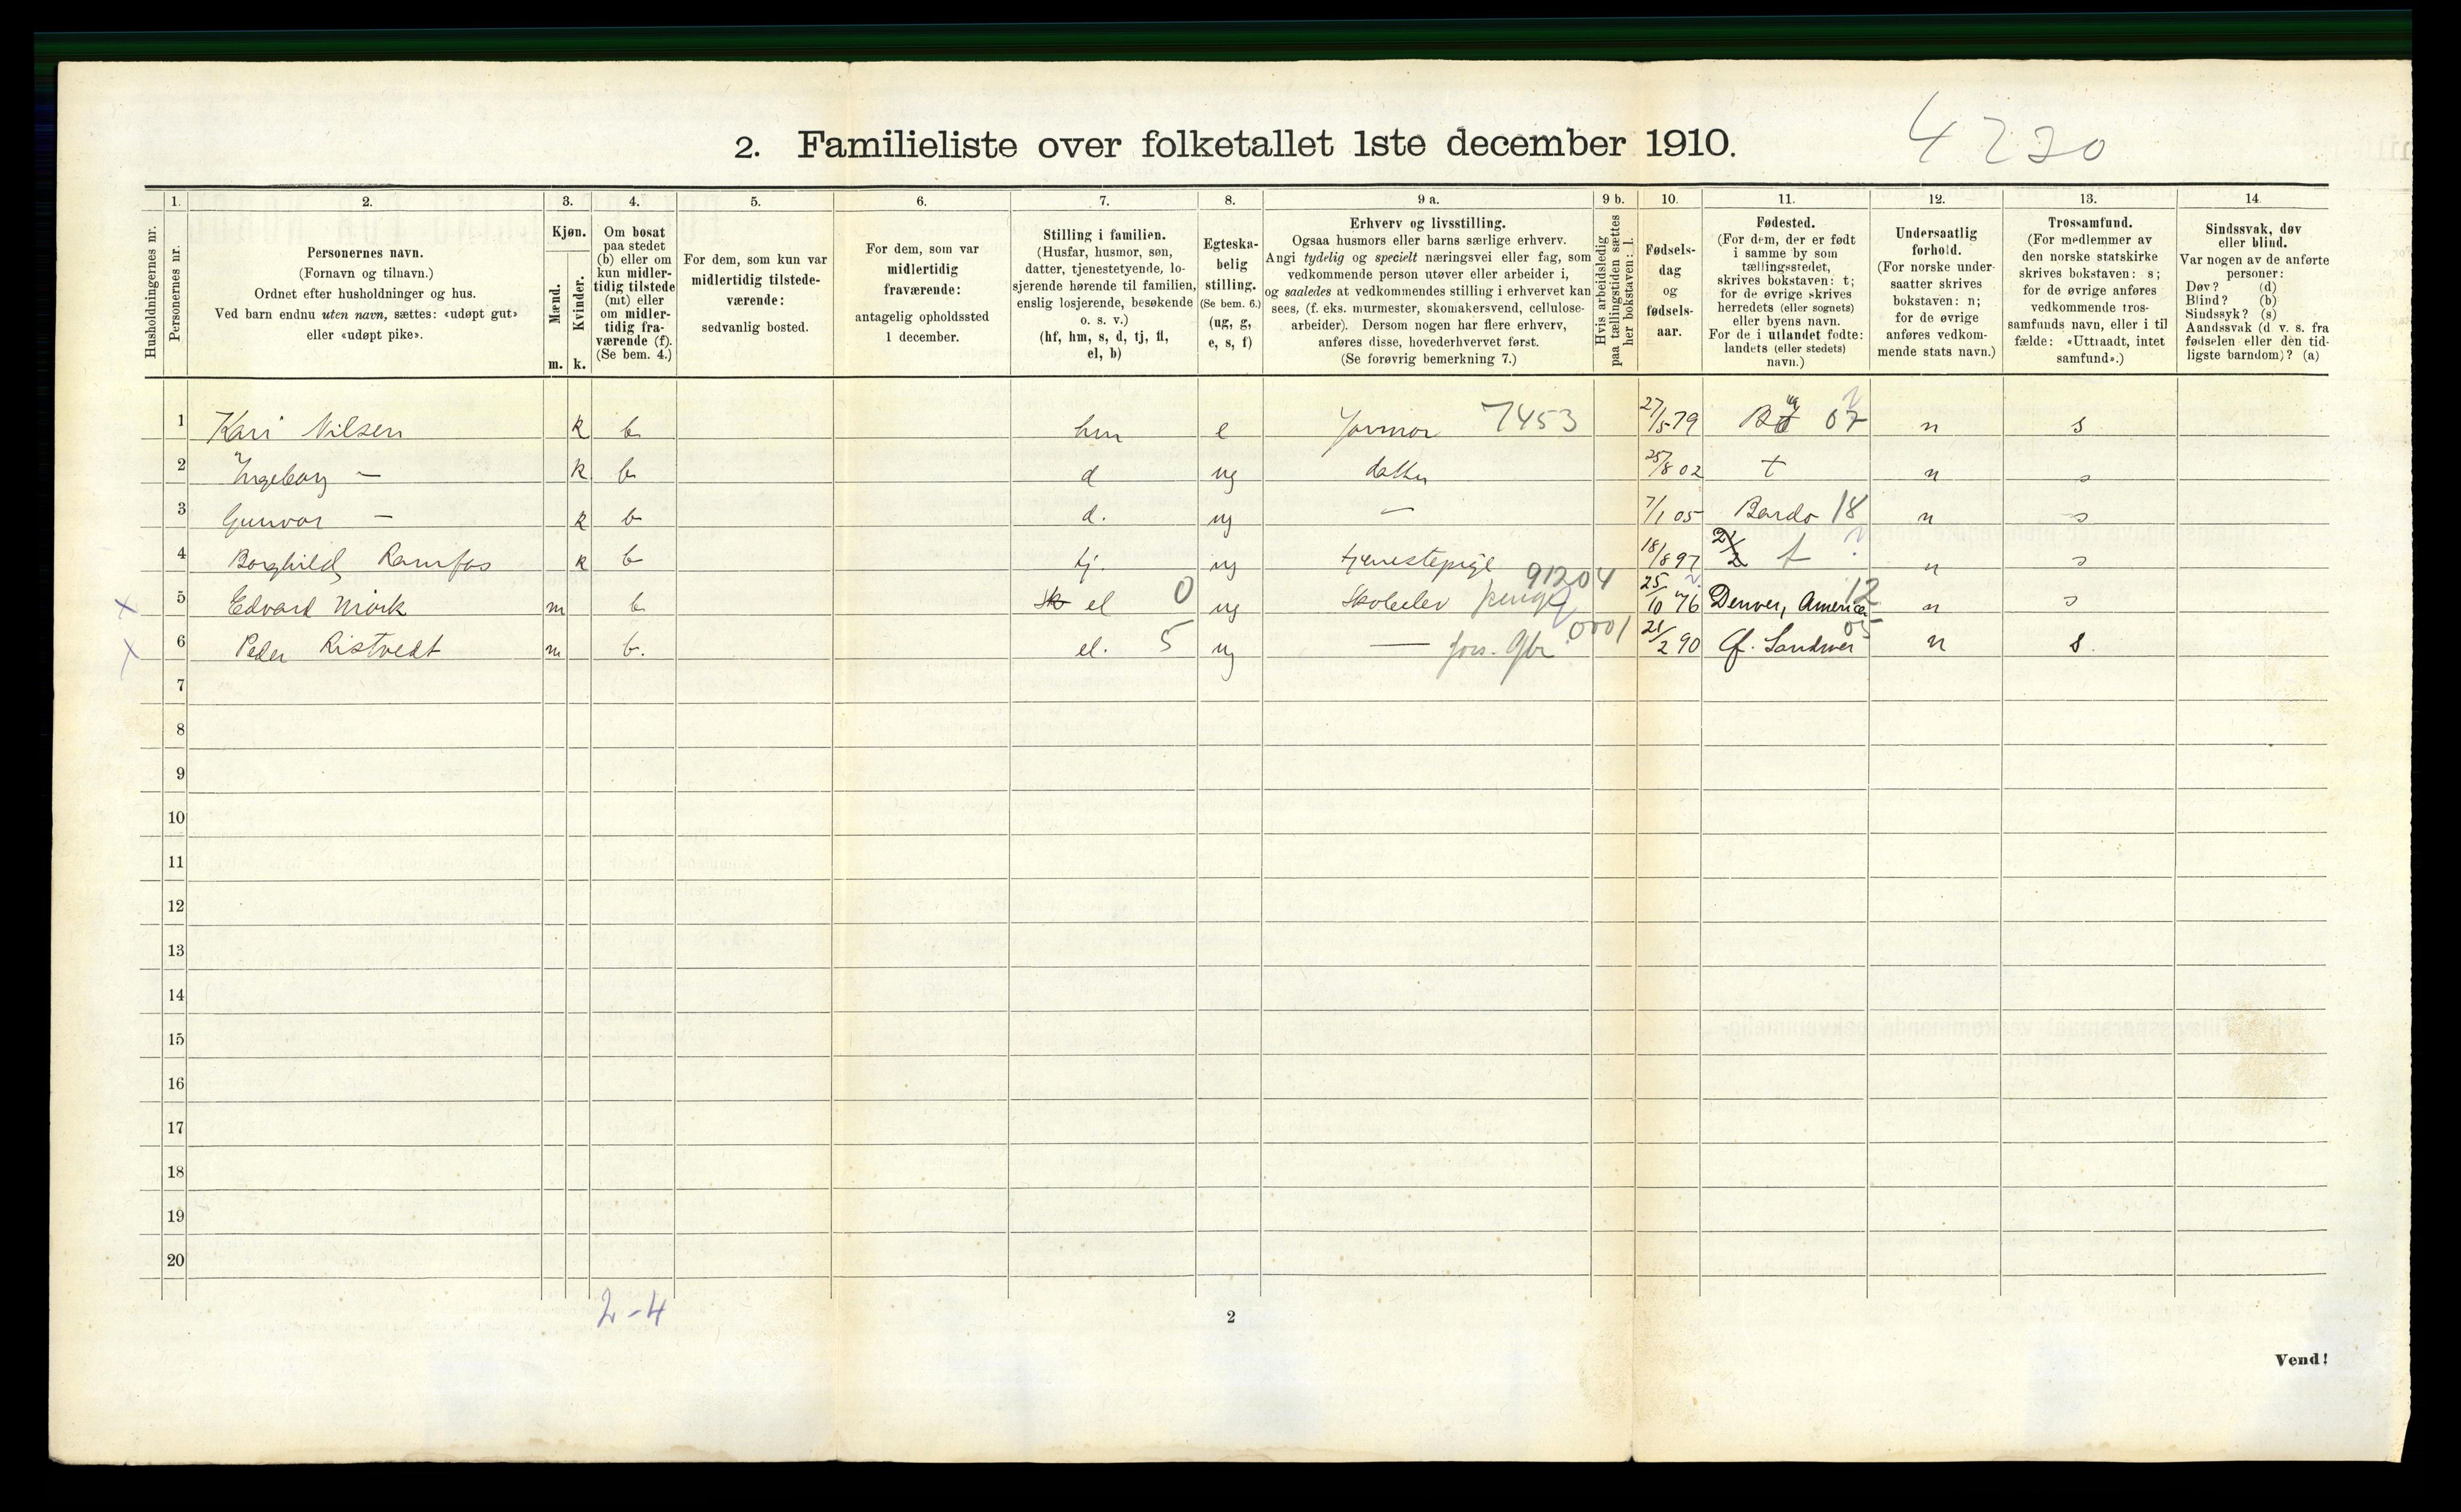 2. Familieliste over folketallet 1ste december 1910.
4220
1. 2. 3. 4. 5. 6. 7. 8. 9 a. 9 b. 10. 11. 12. 13. 14
Husholdningernes nr.
Personernes nr.
Personernes navn.
(Fornavn og tilnavn.)
Ordnet efter husholdninger og hus.
Ved barn endnu uten navn, sættes: «udøpt gut»
eller «udøpt pike».
Kjøn.
Mænd.
Kvinder.
m. k.
Om bosat
paa stedet
(b) eller om
kun midler-
tidig tilstede
(mt) eller
om midler-
tidig fra-
værende (f).
(Se bem. 4.)
For dem, som kun var
midlertidig tilstede-
værende:
sedvanlig bosted.
For dem, som var
midlertidig
fraværende:
antagelig opholdssted
1 december.
Stilling i familien.
(Husfar, husmor, søn,
datter, tjenestetyende, lo-
sjerende hørende til familien,
enslig losjerende, besøkende
o. s. v.)
(hf, hm, s, d, tj, fl,
el, b)
Egteska-
belig
stilling.
(Se bem. 6.)
(ug, g,
e, s, f)
Erhverv og livsstilling.
Ogsaa husmors eller barns særlige erhverv.
Angi tydelig og specielt næringsvei eller fag, som
vedkommende person utøver eller arbeider i,
og saaledes at vedkommendes stilling i erhvervet kan
sees, (f. eks. murmester, skomakersvend, cellulose-
arbeider). Dersom nogen har flere erhverv,
anføres disse, hovederhvervet først.
(Se forøvrig bemerkning 7.)
Hvis arbeidsledig
paa tællingstiden sættes
her bokstaven: l.
Fødsels-
dag
og
fødsels-
aar.
Fødested.
(For dem, der er født
i samme by som
tællingsstedet,
skrives bokstaven: t;
for de øvrige skrives
herredets (eller sognets)
eller byens navn.
For de i utlandet fødte:
landets (eller stedets)
navn.)
Undersaatlig
forhold.
(For norske under-
saatter skrives
bokstaven: n;
for de øvrige
anføres vedkom-
mende stats navn.)
Trossamfund.
(For medlemmer av
den norske statskirke
skrives bokstaven: s;
for de øvrige anføres
vedkommende tros-
samfunds navn, eller i til
fælde: «Uttraadt, intet
samfund».)
Sindssvak, døv
eller blind.
Var nogen av de anførte
personer:
Døv? (d)
Blind? (b)
Sindssyk? (s)
Aandssvak (d v. s. fra
fødselen eller den tid-
ligste barndom)? (a)
1 Kari Nilsen k b hm e Jormor 7453 27/5 79 07 n s
2 Ingeborg — k b d ug datter 25/8 02 t n s
3 Gunvor — k b d. ug — 7/1 05 Bardo 18 n s
4 Borghild Ramfos k b tj. ug tjenestepige 18/8 97 t n s
5 Edvard Mörk m b el 0 ug Skoleelev 91204 25/10 76 Denver, America 12 n s
6 Peder Ristvedt m b. el. 5 ug — fors. Gbr 0001 21/2 90 Sandsvær 05 n s.
7
8
9
10
11
12
13
14
15
16
17
18
19
20
2-4
2
Vend!